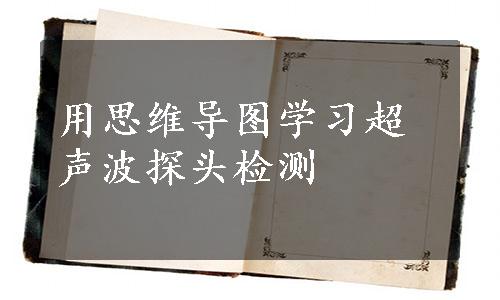 用思维导图学习超
声波探头检测